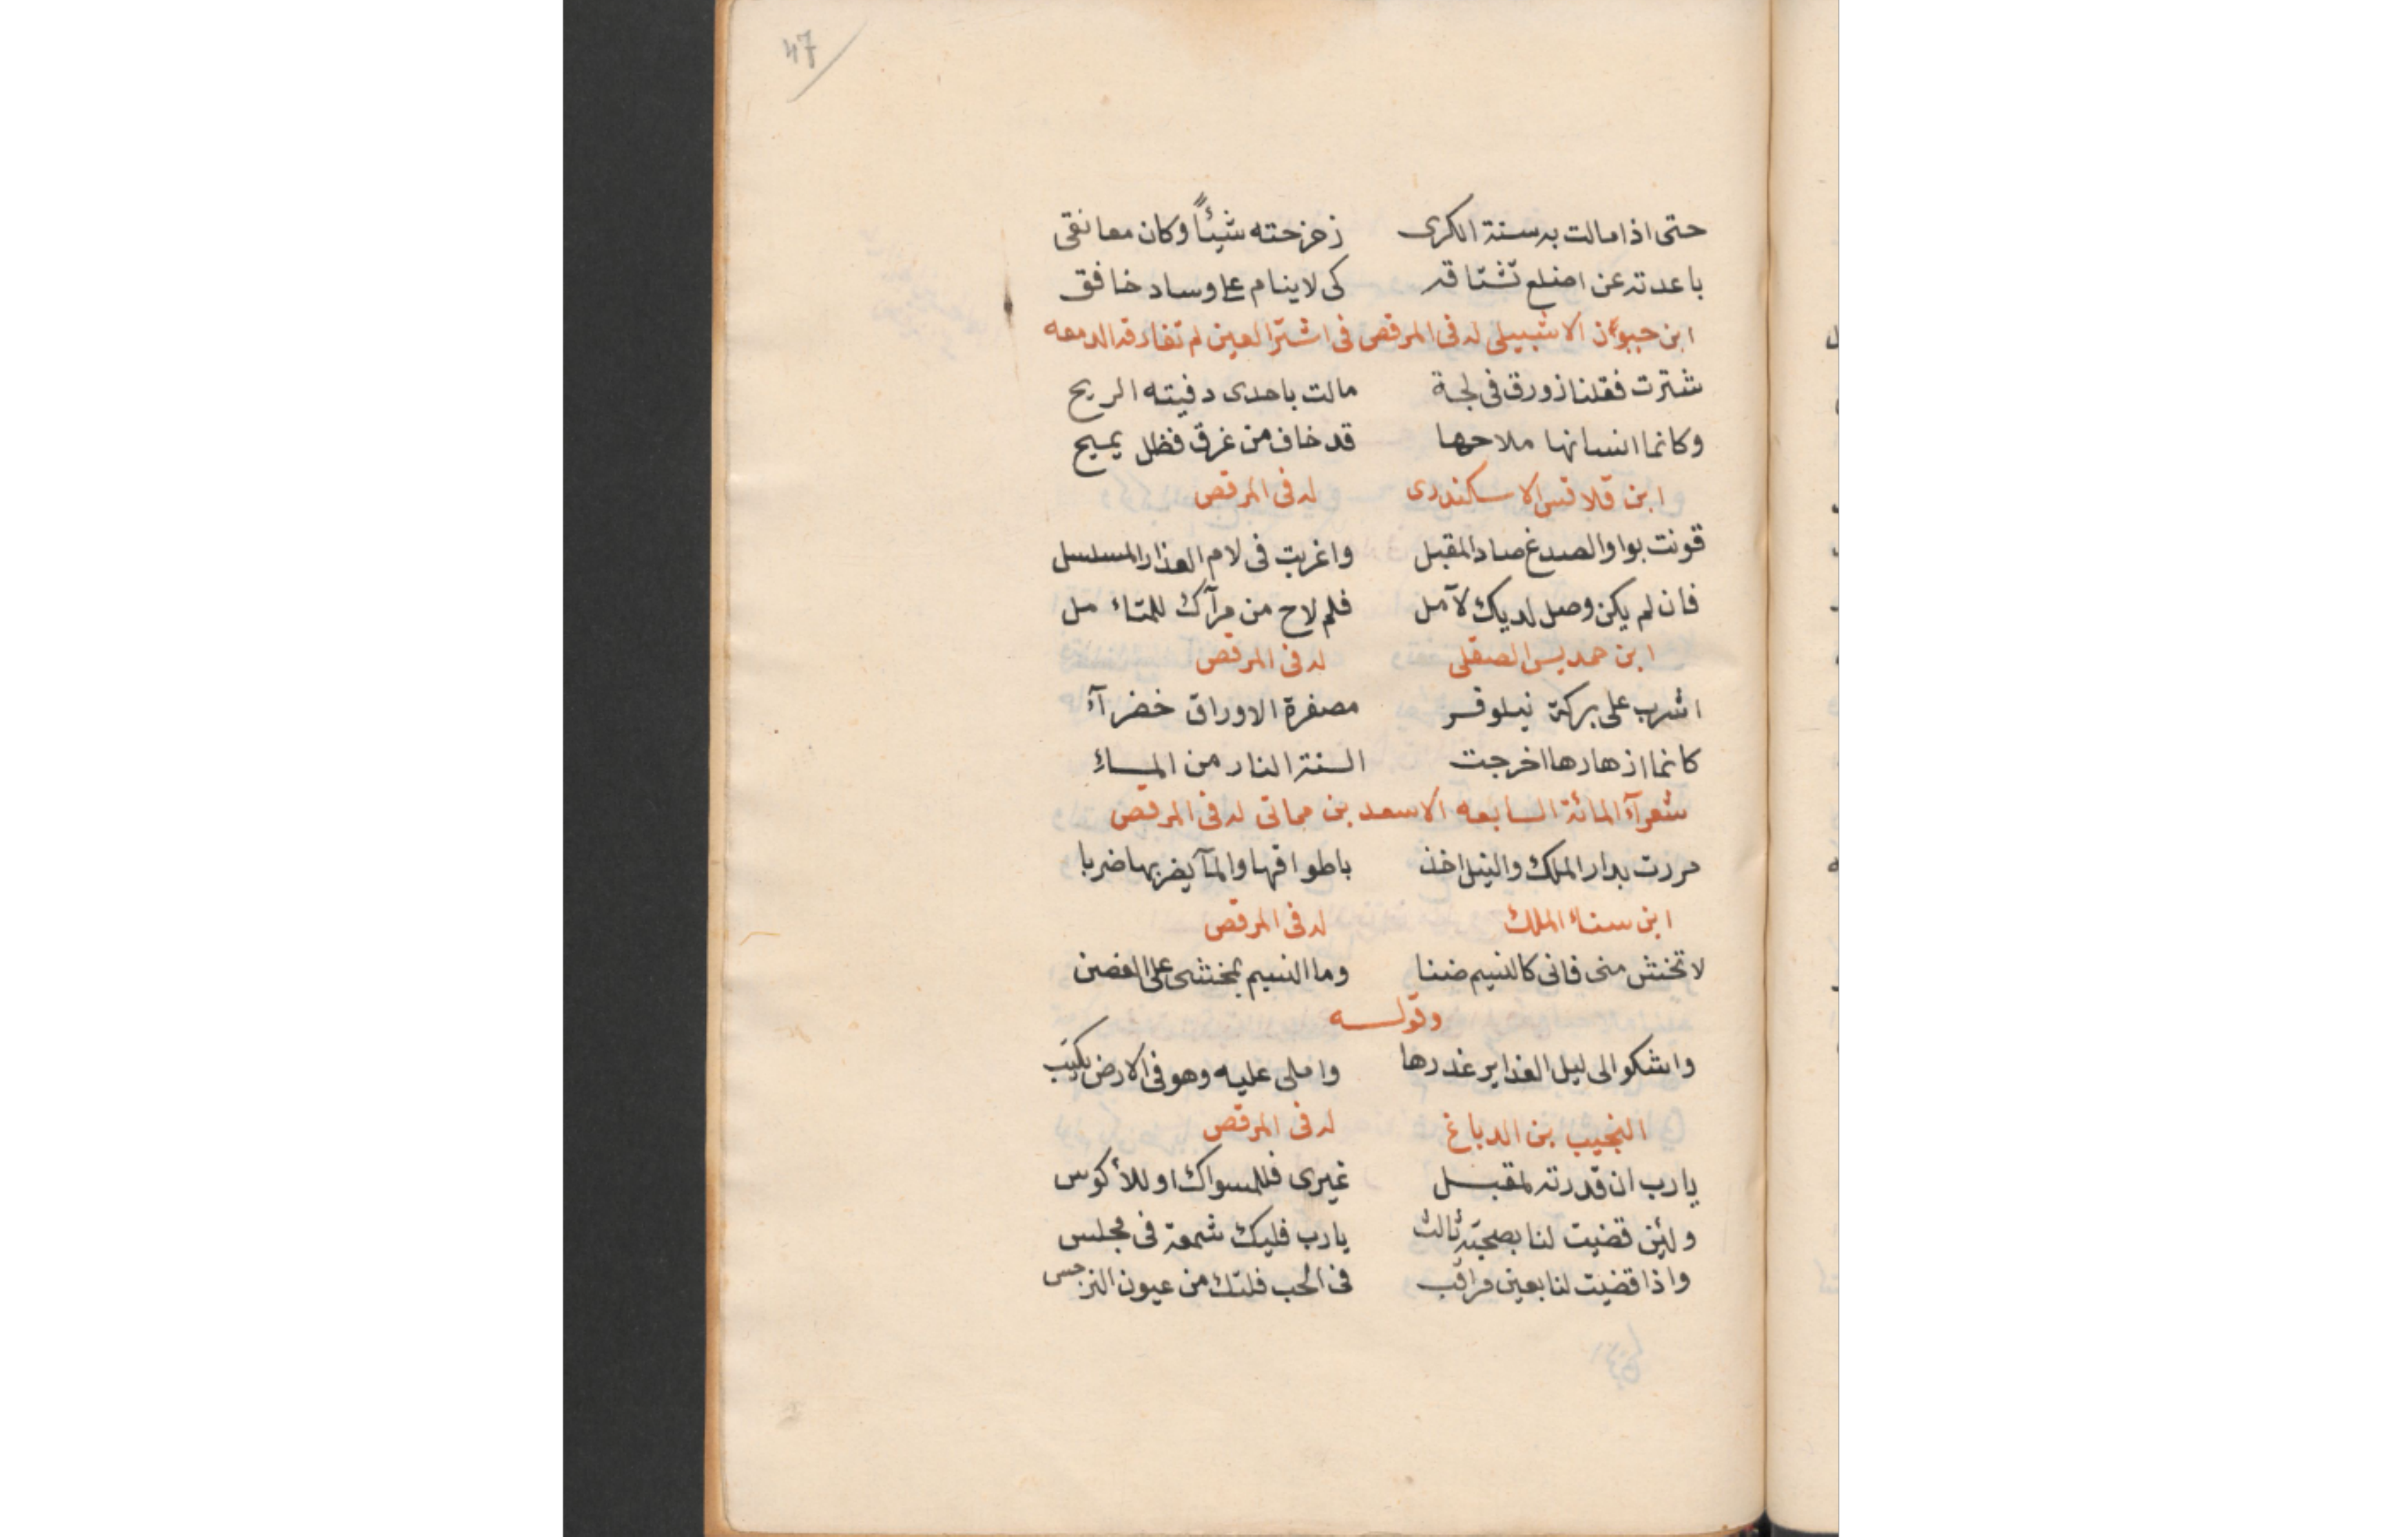 47
حتى اذا مالت به سنة الكرى زحزحته شيئاً وكان معانقى
باعدته عن اضلع تشتاقه كى لاينام على وساد خافق
ابن الاشبيلى له فى المرقص فى اشتر العين لم تفارقه الدمعه
شترت فقلنا زورق فى لجة مالت باحدى دفيته الريح
وكانما انسانها ملاحها قد خاف من غرق فظل يميح
ابن قلاقس الاسكندرى له فى المرقص
قونت بواو الصدغ صاد المقبل واغربت فى لام العذار المسلسل
فان لم يكن وصل لديك لآمل فلم لاح من مرآك للمتاءمل
ابن حمديس الصقلى له فى المرقص
اشرب على بركة نيلوفر مصفرة الاوراق خضرآء
كانما ازهارها اخرجت السنة النار من الماءِ
شعرآء المائة السابعه الاسعد بن مماتى له فى المرقص
مررت بدار الملك والنيل اخذ باطواقها والمآ يضربها ضربا
ابن سناء الملك له فى المرقص
لا تخش منى فانى كالنسيم ضنا وما النسيم بمخشى على الغصن
وقوله
واشكو الى ليل الغداير غدرها واملى عليه وهو فى الارض يكتب
النجيب بن الدباغ له فى المرقص
يا رب ان قدرته لمقبل غيرى فللمسواك او للأكوس
ولئن قضيت لنا بصحبة ثالث يا رب فليك شمعة فى مجلس
واذا قضيت لنا بعين مراقب فى الحب فلتك من عيون النرجس